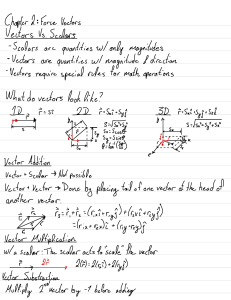 Chapter 2: Force Vectors
Vectors Vs Scalars
- Scalars are quantities w/ only magnitudes
- Vectors are quantities w/ magnitude & direction
- Vectors require special rules for math operations
What do vectors look like?
1D 2D 3D
Vector Addition
Vector + Scalar → Not possible
Vector + Vector → Done by placing tail of one vector @ the head of
another vector.
Vector Multiplication
w/ a scalar: The scalar acts to "scale" the vector
Vector Subtraction
Multiply 2nd vector by -1 before adding